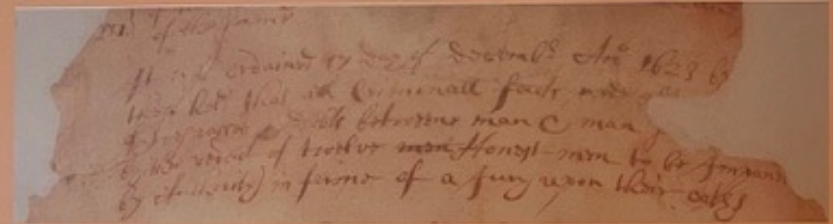 of the same
It was ordained 17 day of decemb: Ano 1623 by
that all Criminall facts
& betweene man & man
by the verdict of twelve men Honest men to be Impanel
by Authority in forme of a Jury upon their oaths